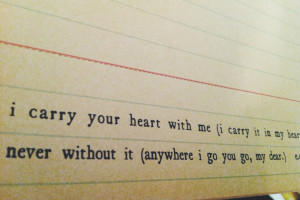 i carry your heart with me (i carry it in my
never without it (anywhere i go you go, my dear.)